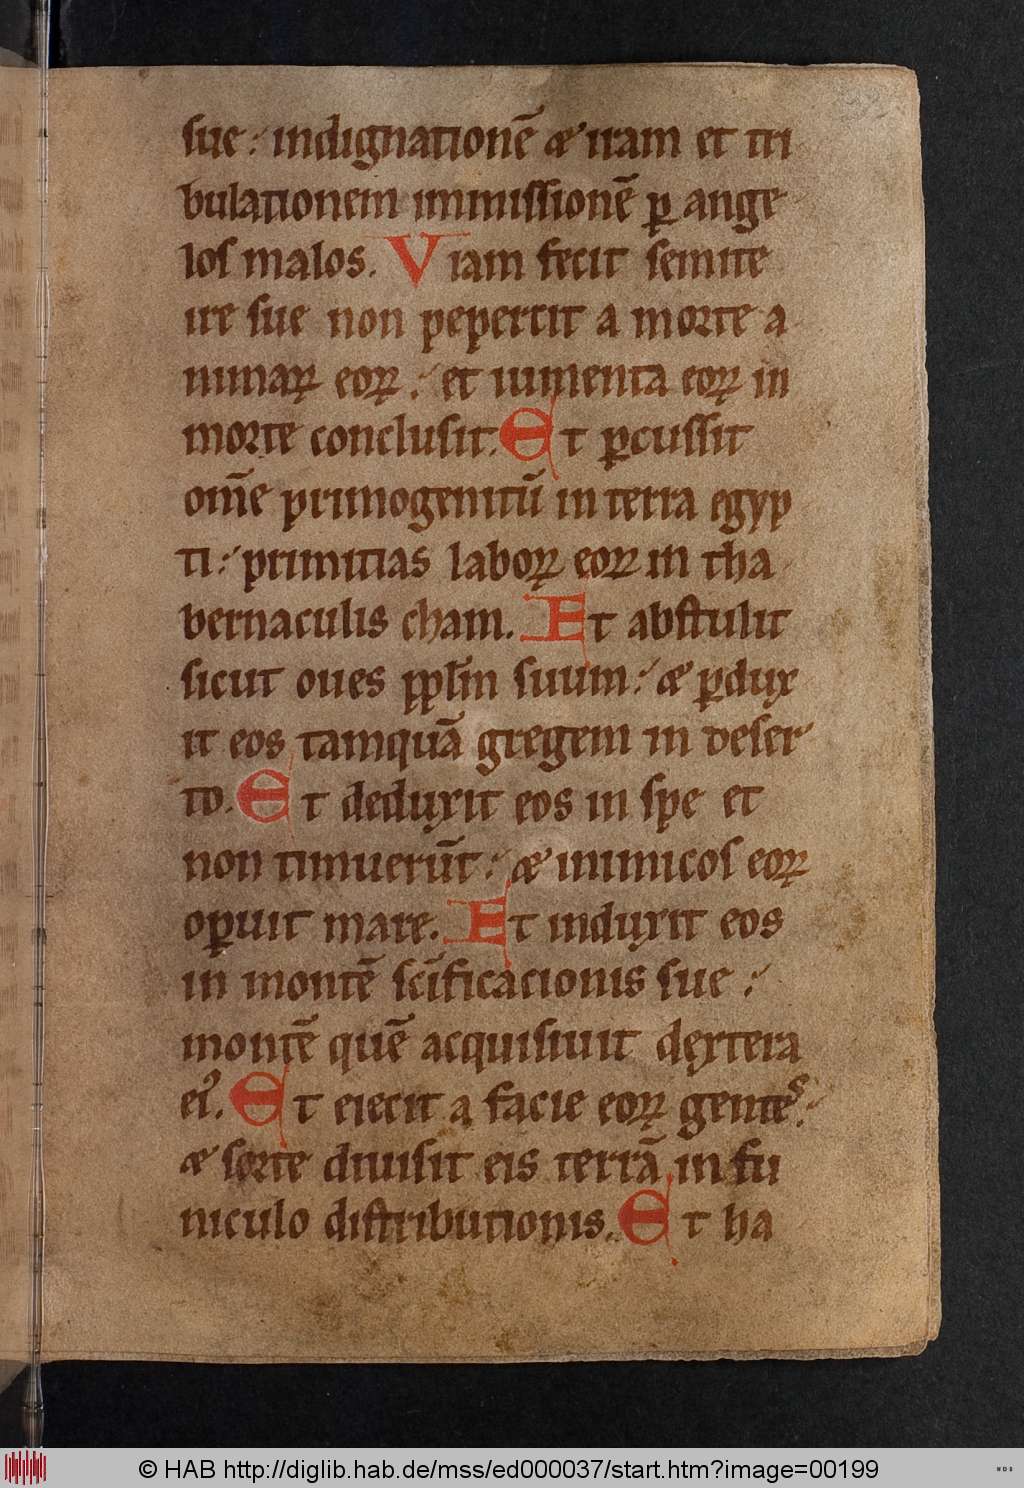 sue : indignationē & iram et tri
bulationem immissionē ꝑ ange
los malos. Viam fecit semite
ire sue non pepercit a morte a
nimaꝝ eoꝝ : et iumenta eoꝝ in
morte conclusit. Et ꝑcussit
om̄e primogenitū in terra egyp
ti : primitias laboꝝ eoꝝ in tha
bernaculis cham. Et abstulit
sicut oues ppl̄m suum : & ꝑdux
it eos tamquā gregem in deser
to. Et deduxit eos in spe et
non timuerūt : & inimicos eoꝝ
oꝑuit mare. Et induxit eos
in montē sc̄ificacionis sue :
montē quē acquisiuit dextera
eiꝰ. Et eiecit a facie eoꝝ gentes :
& sorte diuisit eis terrā in fu
niculo distributionis. Et ha
© HAB http://diglib.hab.de/mss/ed000037/start.htm?image=00199